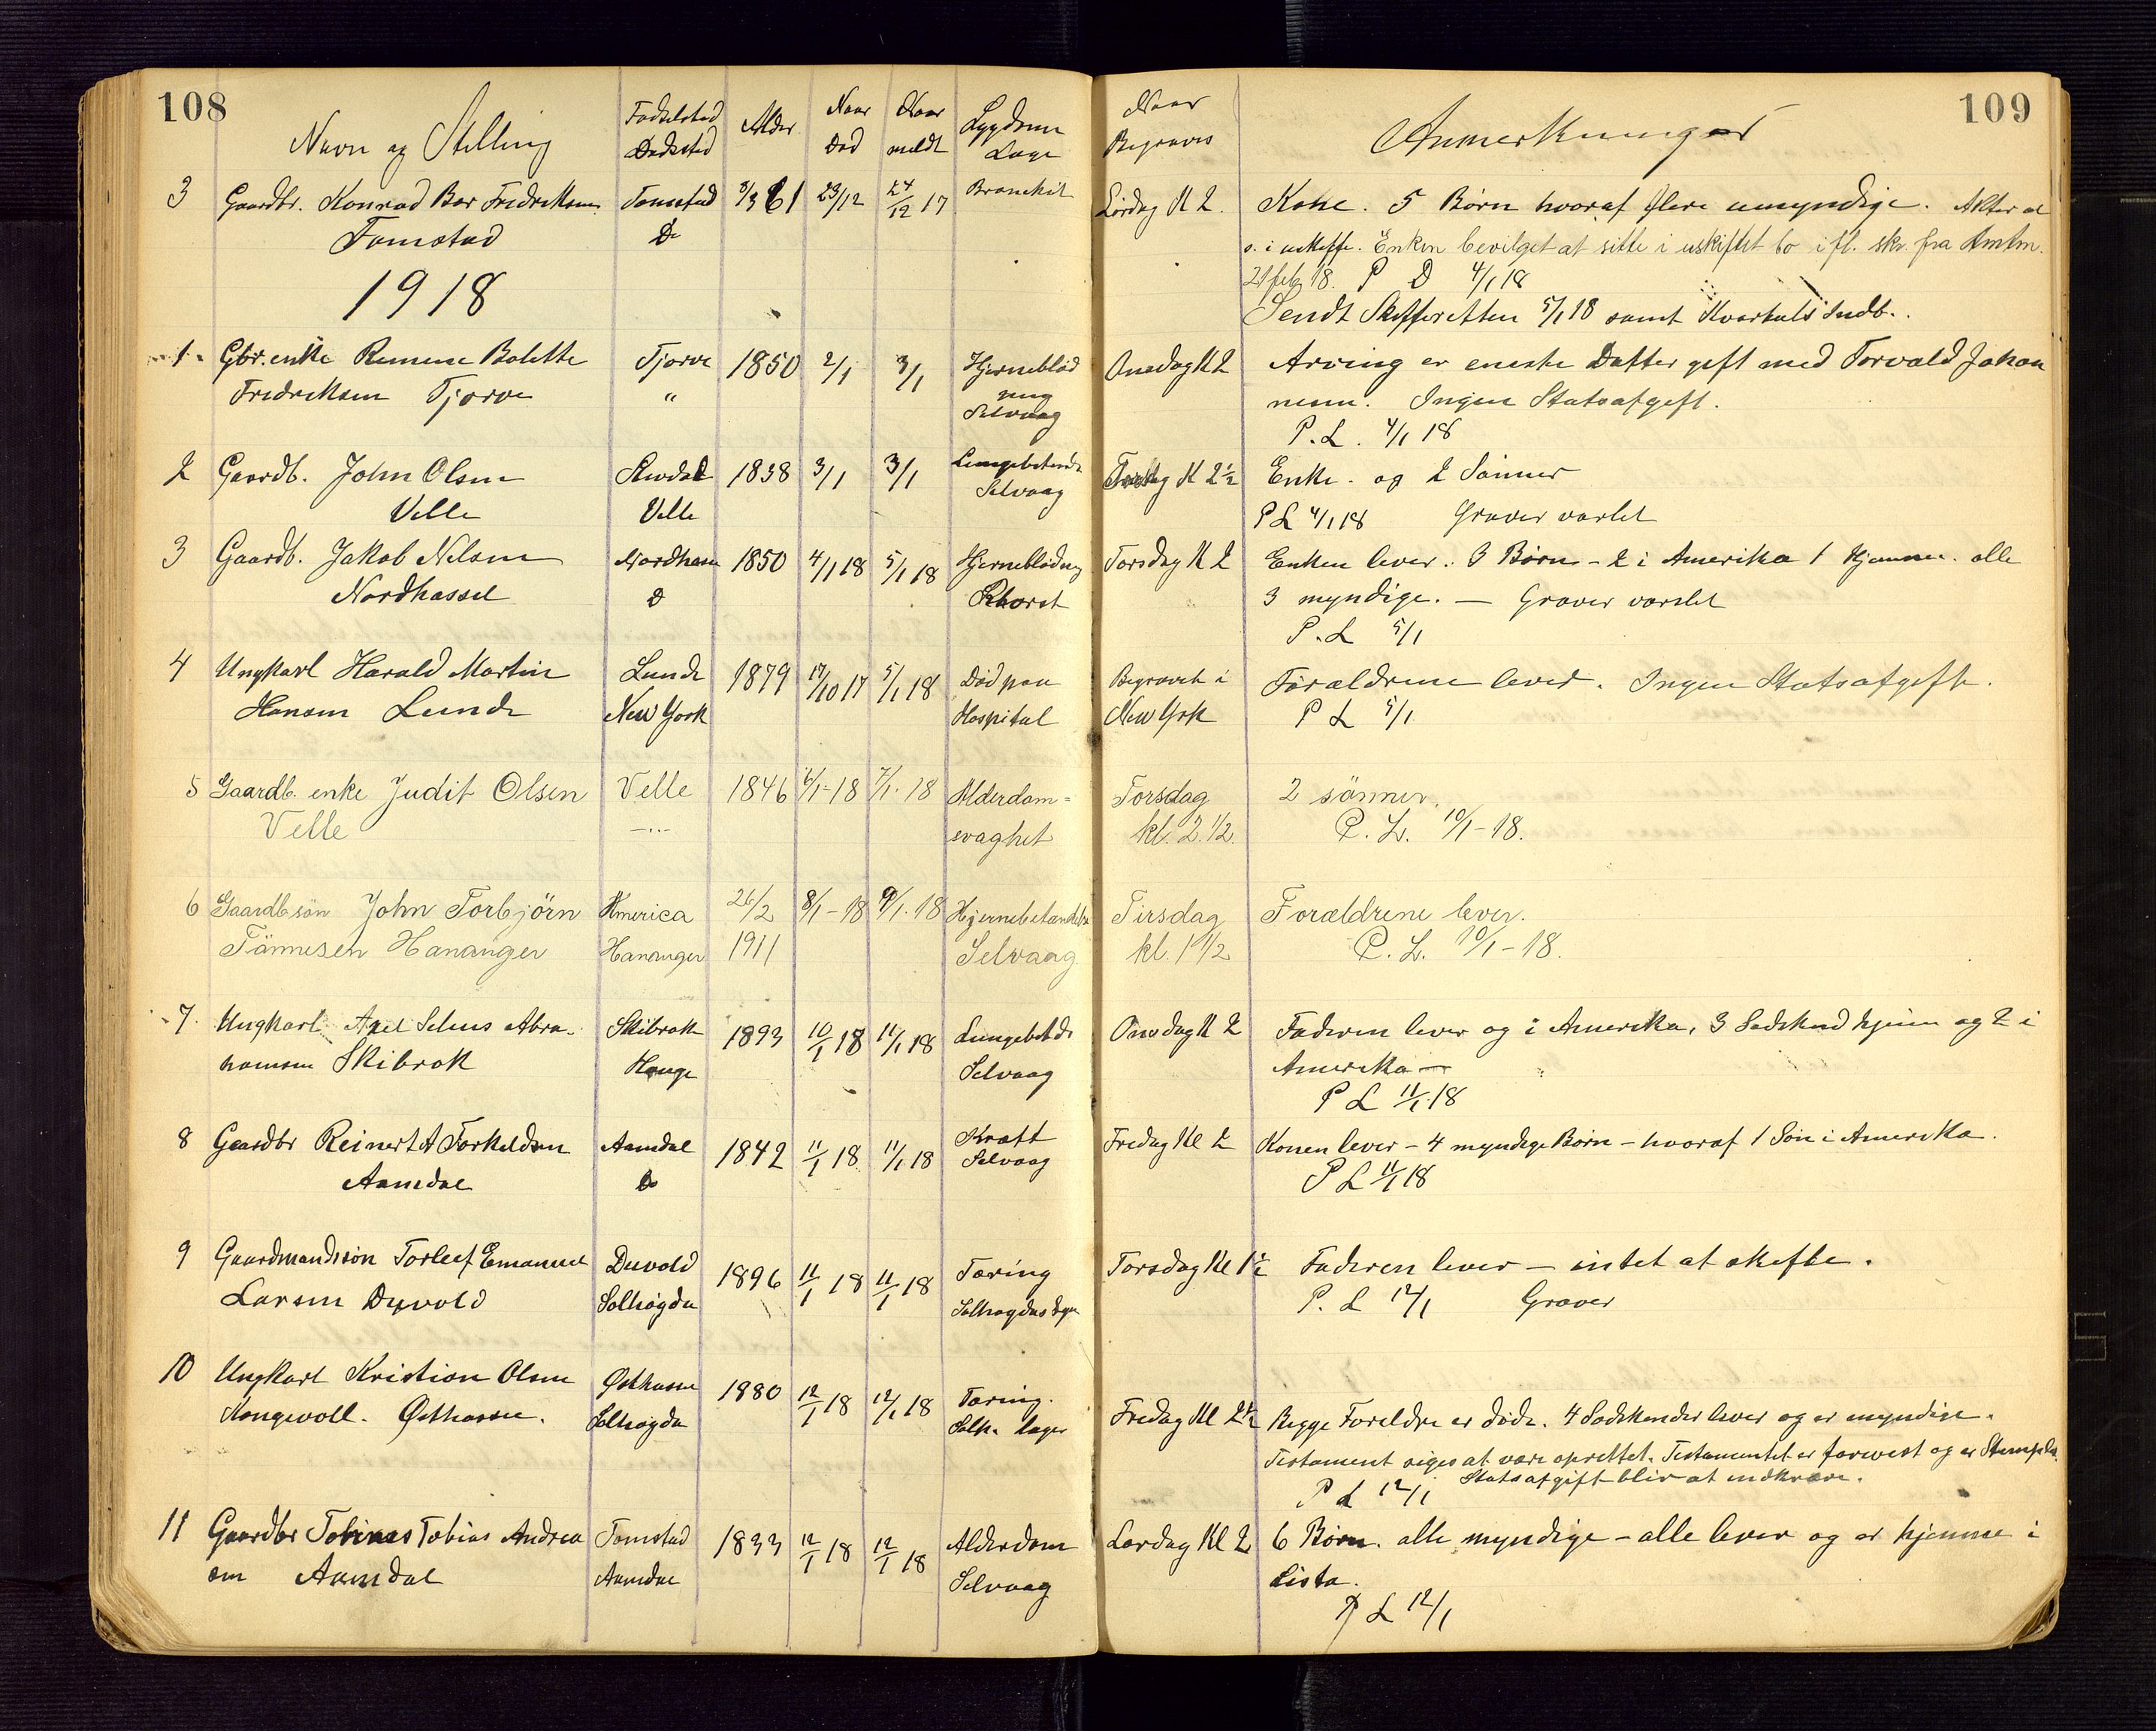 108
109
Navn og Stilling
Fødselsted
Dødssted
Alder
Naar
Død
Naar
meldt
Sygdom
Læge
Naar
Begraves
Anmerkninger
3 Gaardbr. Konrad Bar Fredriksen Tomstad 3/3 61 23/12 24/12 17 Bronchit Lørdag Kl 2 Kone. 5 Børn hvoraf flere umyndige.
Tomstad Do Enken bevilget at sitte i uskiftet bo ifl. skr. fra Amtm.
21 feb 18. P D 4/1 18
1918
Sendt Skifteretten 5/1 18 samt Kvartals Indb.
1 Gbr. enke Rumene Bolette Tjørve 1850 2/1 3/1 Hjerneblød Onsdag Kl 2 Arving er eneste Datter gift med Torvald Johan
Fredriksen Tjørve " ning nesen. Ingen Statsafgift.
Selvaag P. L. 4/1 18
2 Gaardb. John Olsen 1838 3/1 3/1 Lungebetænd Kl 2 1/2 Enke og 2 Sønner
Velle Velle Selvaag P L 4/1 18 Graver varslet
3 Gaardb. Jakob Nilsen Nordhassel 1850 4/1 18 5/1 18 Hjerneblødng Torsdag Kl 2 Enken lever. 3 Børn - 2 i Amerika 1 hjemme. alle
Nordhassel D 3 myndige. — Graver varslet
P. L 5/1
4 Ungkarl Harald Martin Lunde 1879 17/10 17 5/1 18 Død paa Begravet i Forældrene lever. Ingen Statsafgift.
Hansen Lunde New York Hospital New York P L 5/1
5 Gaardb. enke Judit Olsen Velle 1846 6/1-18 7/1-18 Alderdom= Torsdag 2 sønner.
Velle —"— svaghet kl. 2 1/2. P. L. 10/1-18.
6 Gaardbsøn John Torbjörn America 26/2 8/1-18 9/1-18 Hjernebetændelse Tirsdag Forældrene lever.
Tønnesen Hananger Hananger 1911 Selvaag kl. 1 1/2 P. L. 10/1-18.
7 Ungkarl Axel Selius Abra- Skibrok 1893 10/1 18 11/1 18 Lungebetde Onsdag Kl 2 Faderen lever og i Amerika, 3 Sødskend hjem og 2 i
hamsen Skibrok Hauge Selvaag Amerika —
P L 11/1 18
8 Gaardbr Reinert A Torkeldsen Aamdal 1842 11/1 18 11/1 18 Kræft Fredag Kl 2 Konen lever - 4 myndige Børn - hvoraf 1 Søn i Amerika.
Aamdal Do Selvaag P L 11/1 18
9 Gaardmandssøn Torleif Emanuel Duvold 1896 11/1 18 11/1 18 Tæring Torsdag Kl 1 1/2 Faderen lever — intet at skifte.
Larsen Duvold Solhøgda P. L 12/1 Graver
10 Ungkarl Kristian Olsen Østhassel 1880 12/1 18 12/1 18 Tæring. Fredag Kl 2 1/2 Begge Foreldre er døde. 4 Sødskender lever og er myndige.
Kongevoll. Østhassel. Solhøgda Solh. læge Testament siges at være oprettet. Testamentet er forevist og er
Statsafgift blir at indkræve.
P L 12/1
11 Gaardbr Tobias Andrea Tomstad 1833 12/1 18 12/1 18 Alderdom Lørdag Kl 2 6 Børn. alle myndige - alle lever og er hjemme i
sen Aamdal Aamdal Selvaag Lista.
P L 12/1